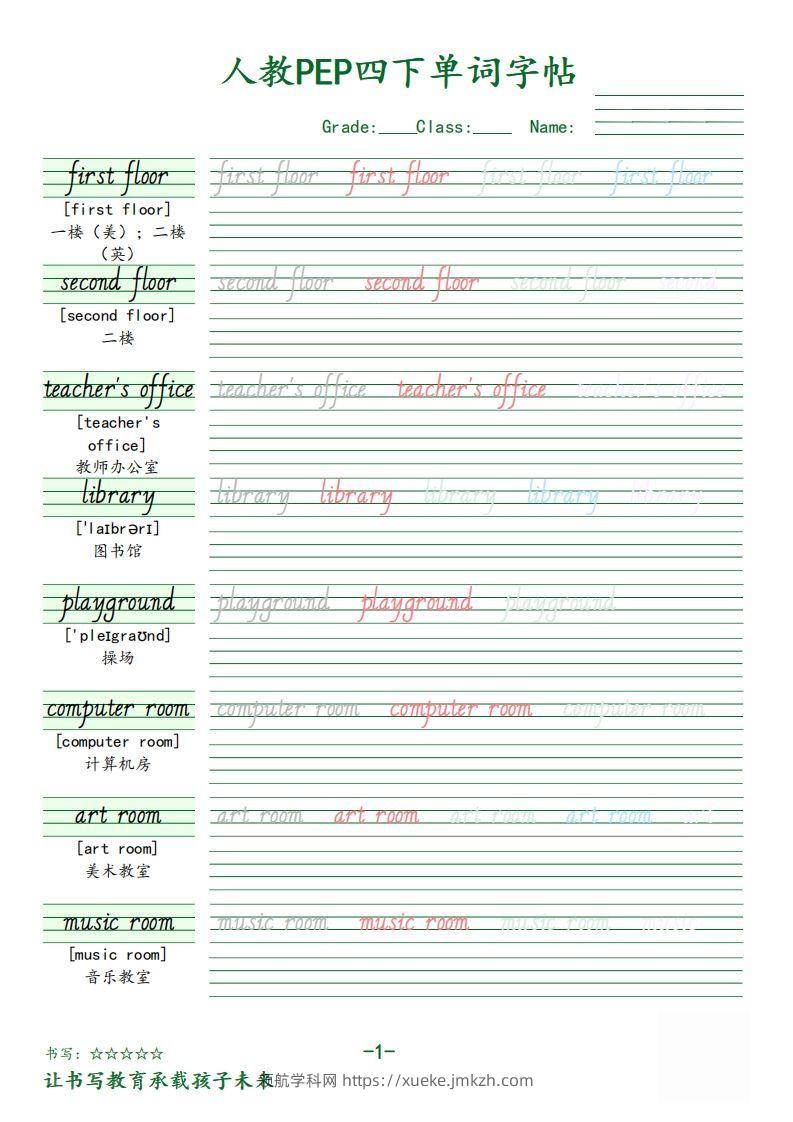 人教PEP四下单词字帖
Grade:____Class:____ Name:
first floor first floor first floor first floor first floor
[first floor]
一楼（美）；二楼
（英）
second floor second floor second floor second floor second
[second floor]
二楼
teacher's office teacher's office teacher's office teacher's office
[teacher's
office]
教师办公室
library library library library library library
['laɪbrərɪ]
图书馆
playground playground playground playground
['pleɪgraʊnd]
操场
computer room computer room computer room computer room
[computer room]
计算机房
art room art room art room art room art room art
[art room]
美术教室
music room music room music room music room music
[music room]
音乐教室
书写：☆☆☆☆☆
-1-
让书写教育承载孩子未来
领航学科网 https://xueke.jmkzh.com